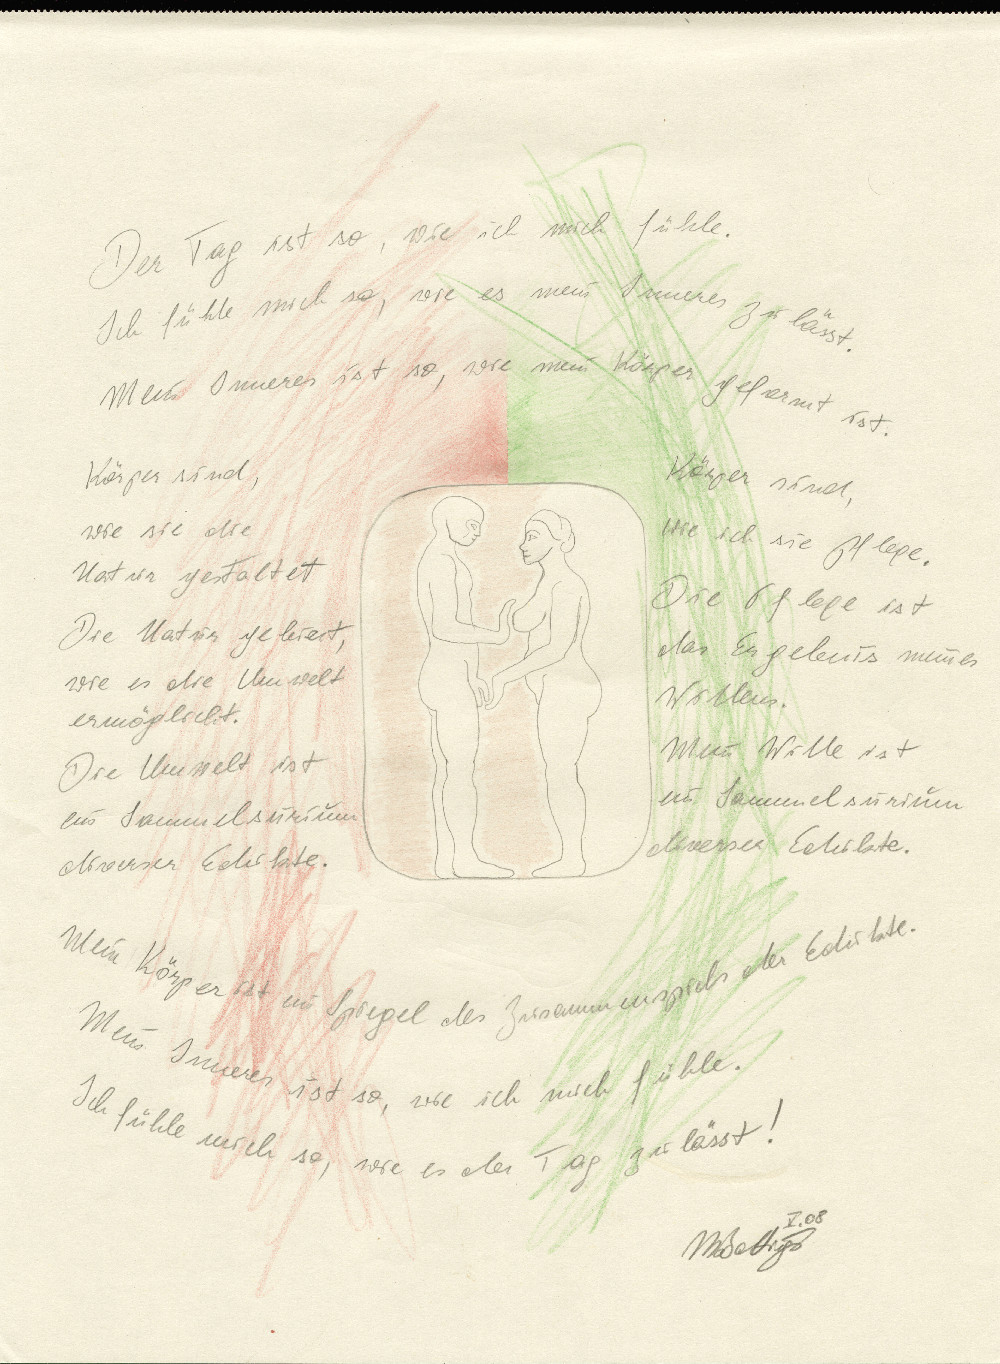 Der Tag ist so, wie ich mich fühle.
Ich fühle mich so, wie es mein Inneres zu lässt.
Mein Inneres ist so, wie mein Körper geformt ist.
Körper sind,
wie sie die
Natur gestaltet
Die Natur gebiert,
wie es die Umwelt
ermöglicht.
Die Umwelt ist
ein Sammelsurium
diverser Edikte.
Körper sind,
wie ich sie pflege.
Die Pflege ist
das Ergebnis meines
Willens.
Mein Wille ist
ein Sammelsurium
diverser Edikte.
Mein Körper ist ein Spiegel des Zusammenspiels der Edikte.
Mein Inneres ist so, wie ich mich fühle.
Ich fühle mich so, wie es der Tag zu lässt!
V.08